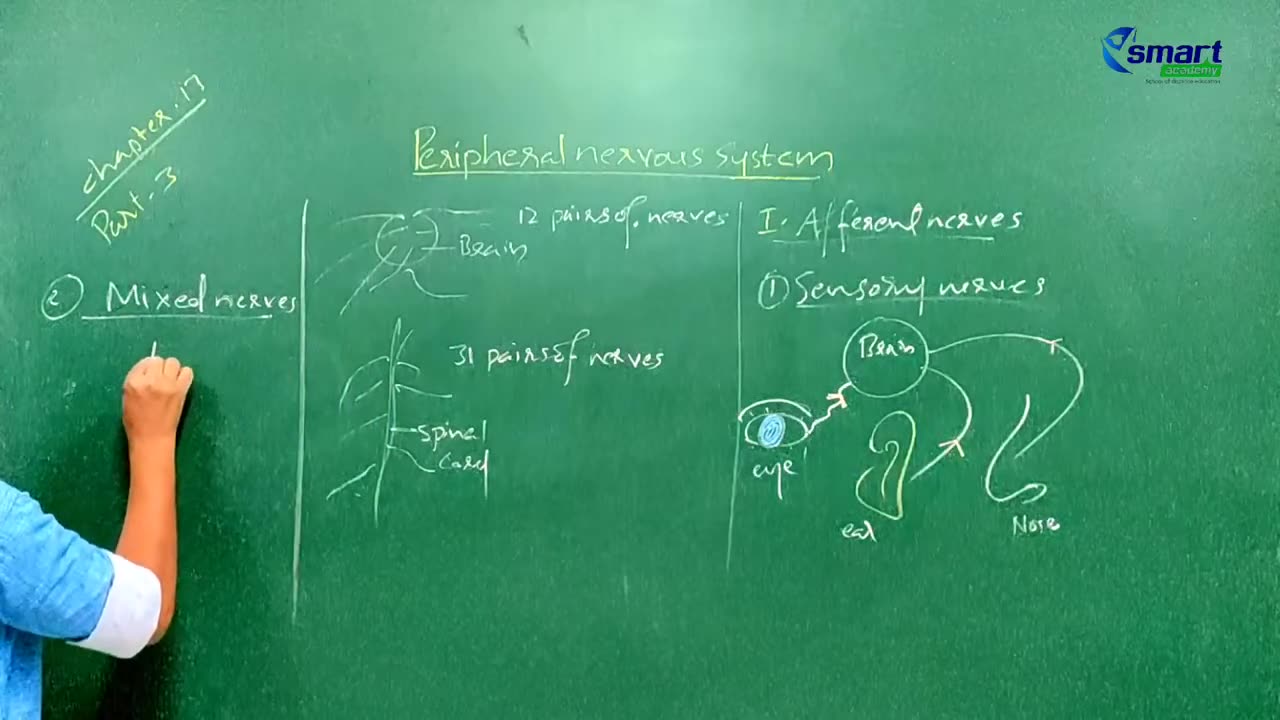 smart
academy
School of digital education
chapter. 17
Part - 3
Peripheral nervous system
② Mixed nerves
12 pairs of. nerves
Brain
31 pairs of nerves
Spinal
Cord
I. Afferent nerves
① Sensory nerves
Brain
eye
ear
Nose